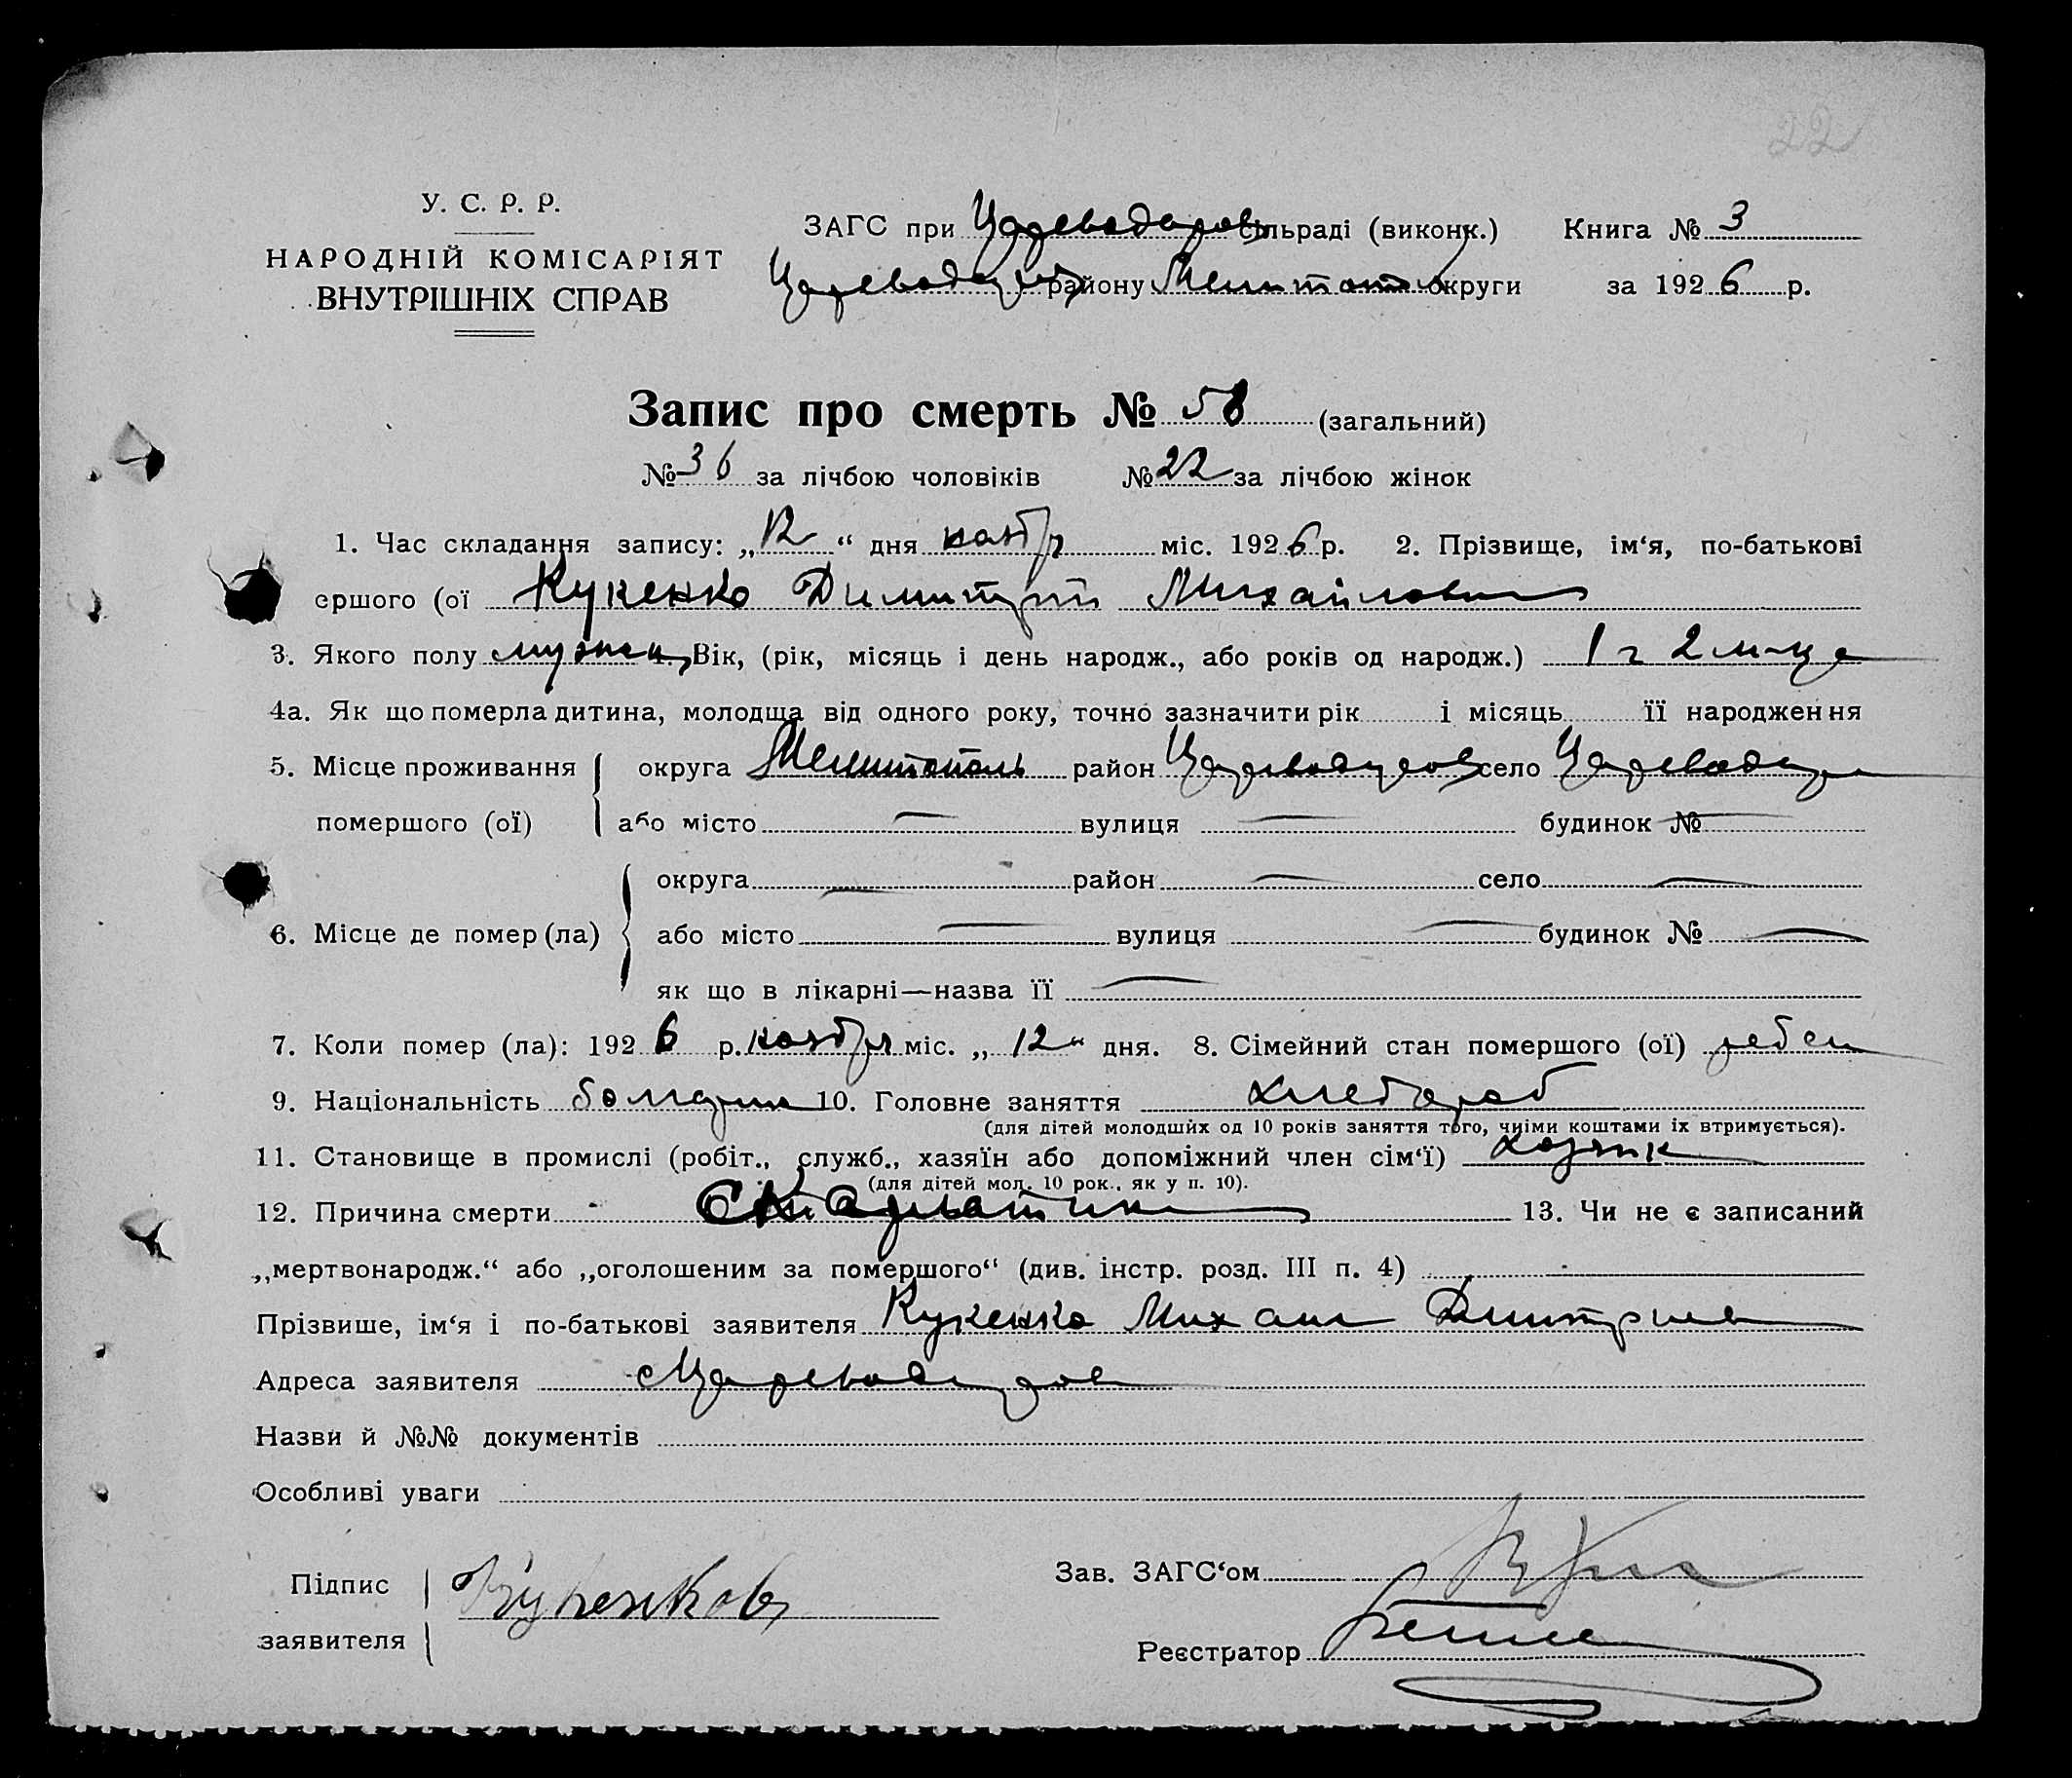 22
У. С. Р. Р.
НАРОДНІЙ КОМІСАРІЯТ
ВНУТРІШНІХ СПРАВ
ЗАГС при Цареводаров сільраді (виконк.) Книга № 3
Цареводаров району Мелитоп округи за 1926 р.
Запис про смерть № 58 (загальний)
№ 36 за лічбою чоловіків № 22 за лічбою жінок
1. Час складання запису: „12“ дня ноябр міс. 1926 р. 2. Прізвище, ім‘я, по-батькові
ершого (ої Кукенко Димитрий Михайлович
3. Якого полу мужск Вік, (рік, місяць і день народж., або років од народж.) 1 г 2 м-ца
4а. Як що померла дитина, молодща від одного року, точно зазначити рік і місяць її народження
5. Місце проживання округа Мелитополь район Цареводаров село Цареводар
помершого (ої) або місто — вулиця — будинок № —
округа — район — село —
6. Місце де помер (ла) або місто — вулиця — будинок № —
як що в лікарні—назва її —
7. Коли помер (ла): 1926 р. ноября міс. „12“ дня. 8. Сімейний стан помершого (ої) ребен
9. Національність болгарин 10. Головне заняття хлебороб
(для дітей молодших од 10 років заняття того, чиїми коштами їх втримується).
11. Становище в промислі (робіт., служб., хазяїн або допоміжний член сім‘ї) хозяик
(для дітей мол. 10 рок., як у п. 10).
12. Причина смерти Скарлатин 13. Чи не є записаний
„мертвонародж.“ або „оголошеним за помершого“ (див. інстр. розд. III п. 4)
Прізвише, ім‘я і по-батькові заявителя Кукенко Михаил Дмитриев
Адреса заявителя с Цареводаров
Назви й №№ документів
Особливі уваги
Підпис
заявителя Кукенков
Зав. ЗАГС‘ом
Реєстратор